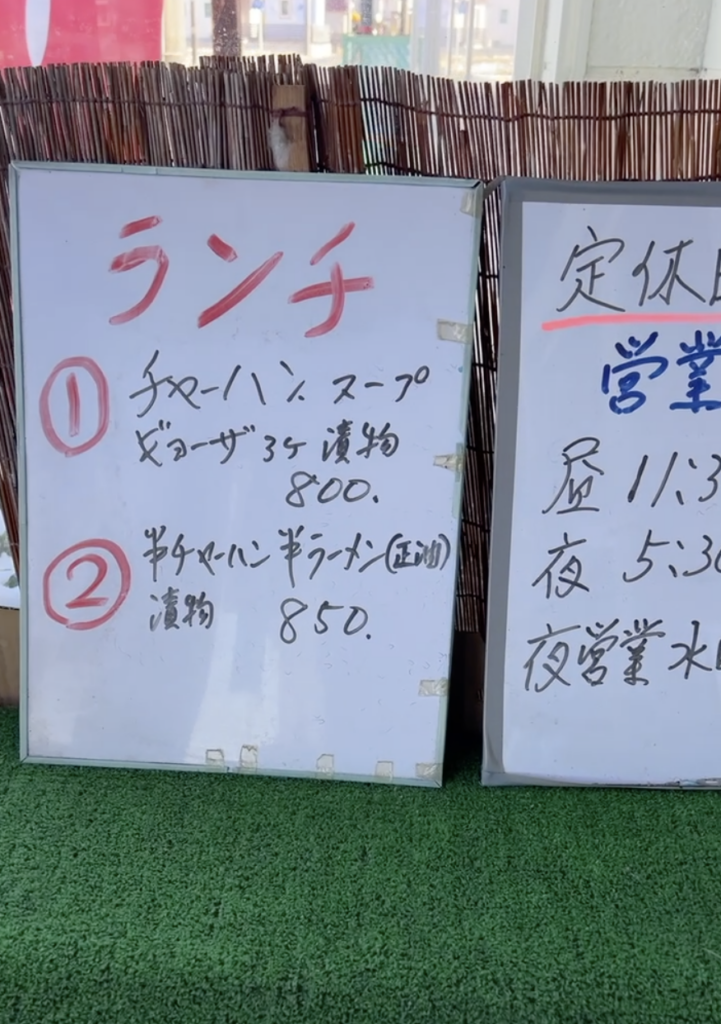 ランチ
① チャーハン スープ
ギョーザ3ケ 漬物
800.
② 半チャーハン 半ラーメン(正油)
漬物 850.
定休日
営業
昼 11:3
夜 5:30
夜営業 水